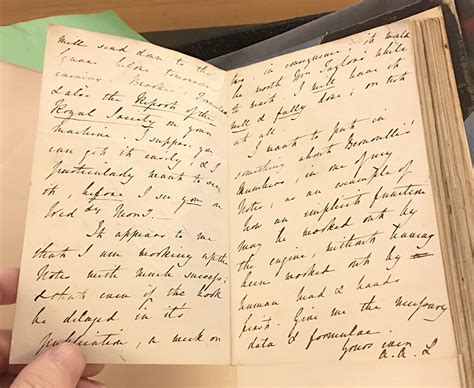 will send down to the
evening; Brooke's Formulae
& also the Report of the
Royal Society on your
machine. I suppose you
can get it easily, & I
particularly want to see
it, before I see you on
Wed dy Morng.
It appears to me
that I am working up the
Notes with much success;
& that even if the book
be delayed in its
publication, a week or
two, in consequence, it would
be worth Mr Taylor's while
to wait. I will have it
well & fully done; or not
at all.
I want to put in
something about Bernoulli's
Numbers, in one of my
Notes, as an example of
how an implicit function
may be worked out by
the engine, without having
been worked out by
human head & hands
first. Give me the necessary
data & formulae.
Yours ever
A. A. L